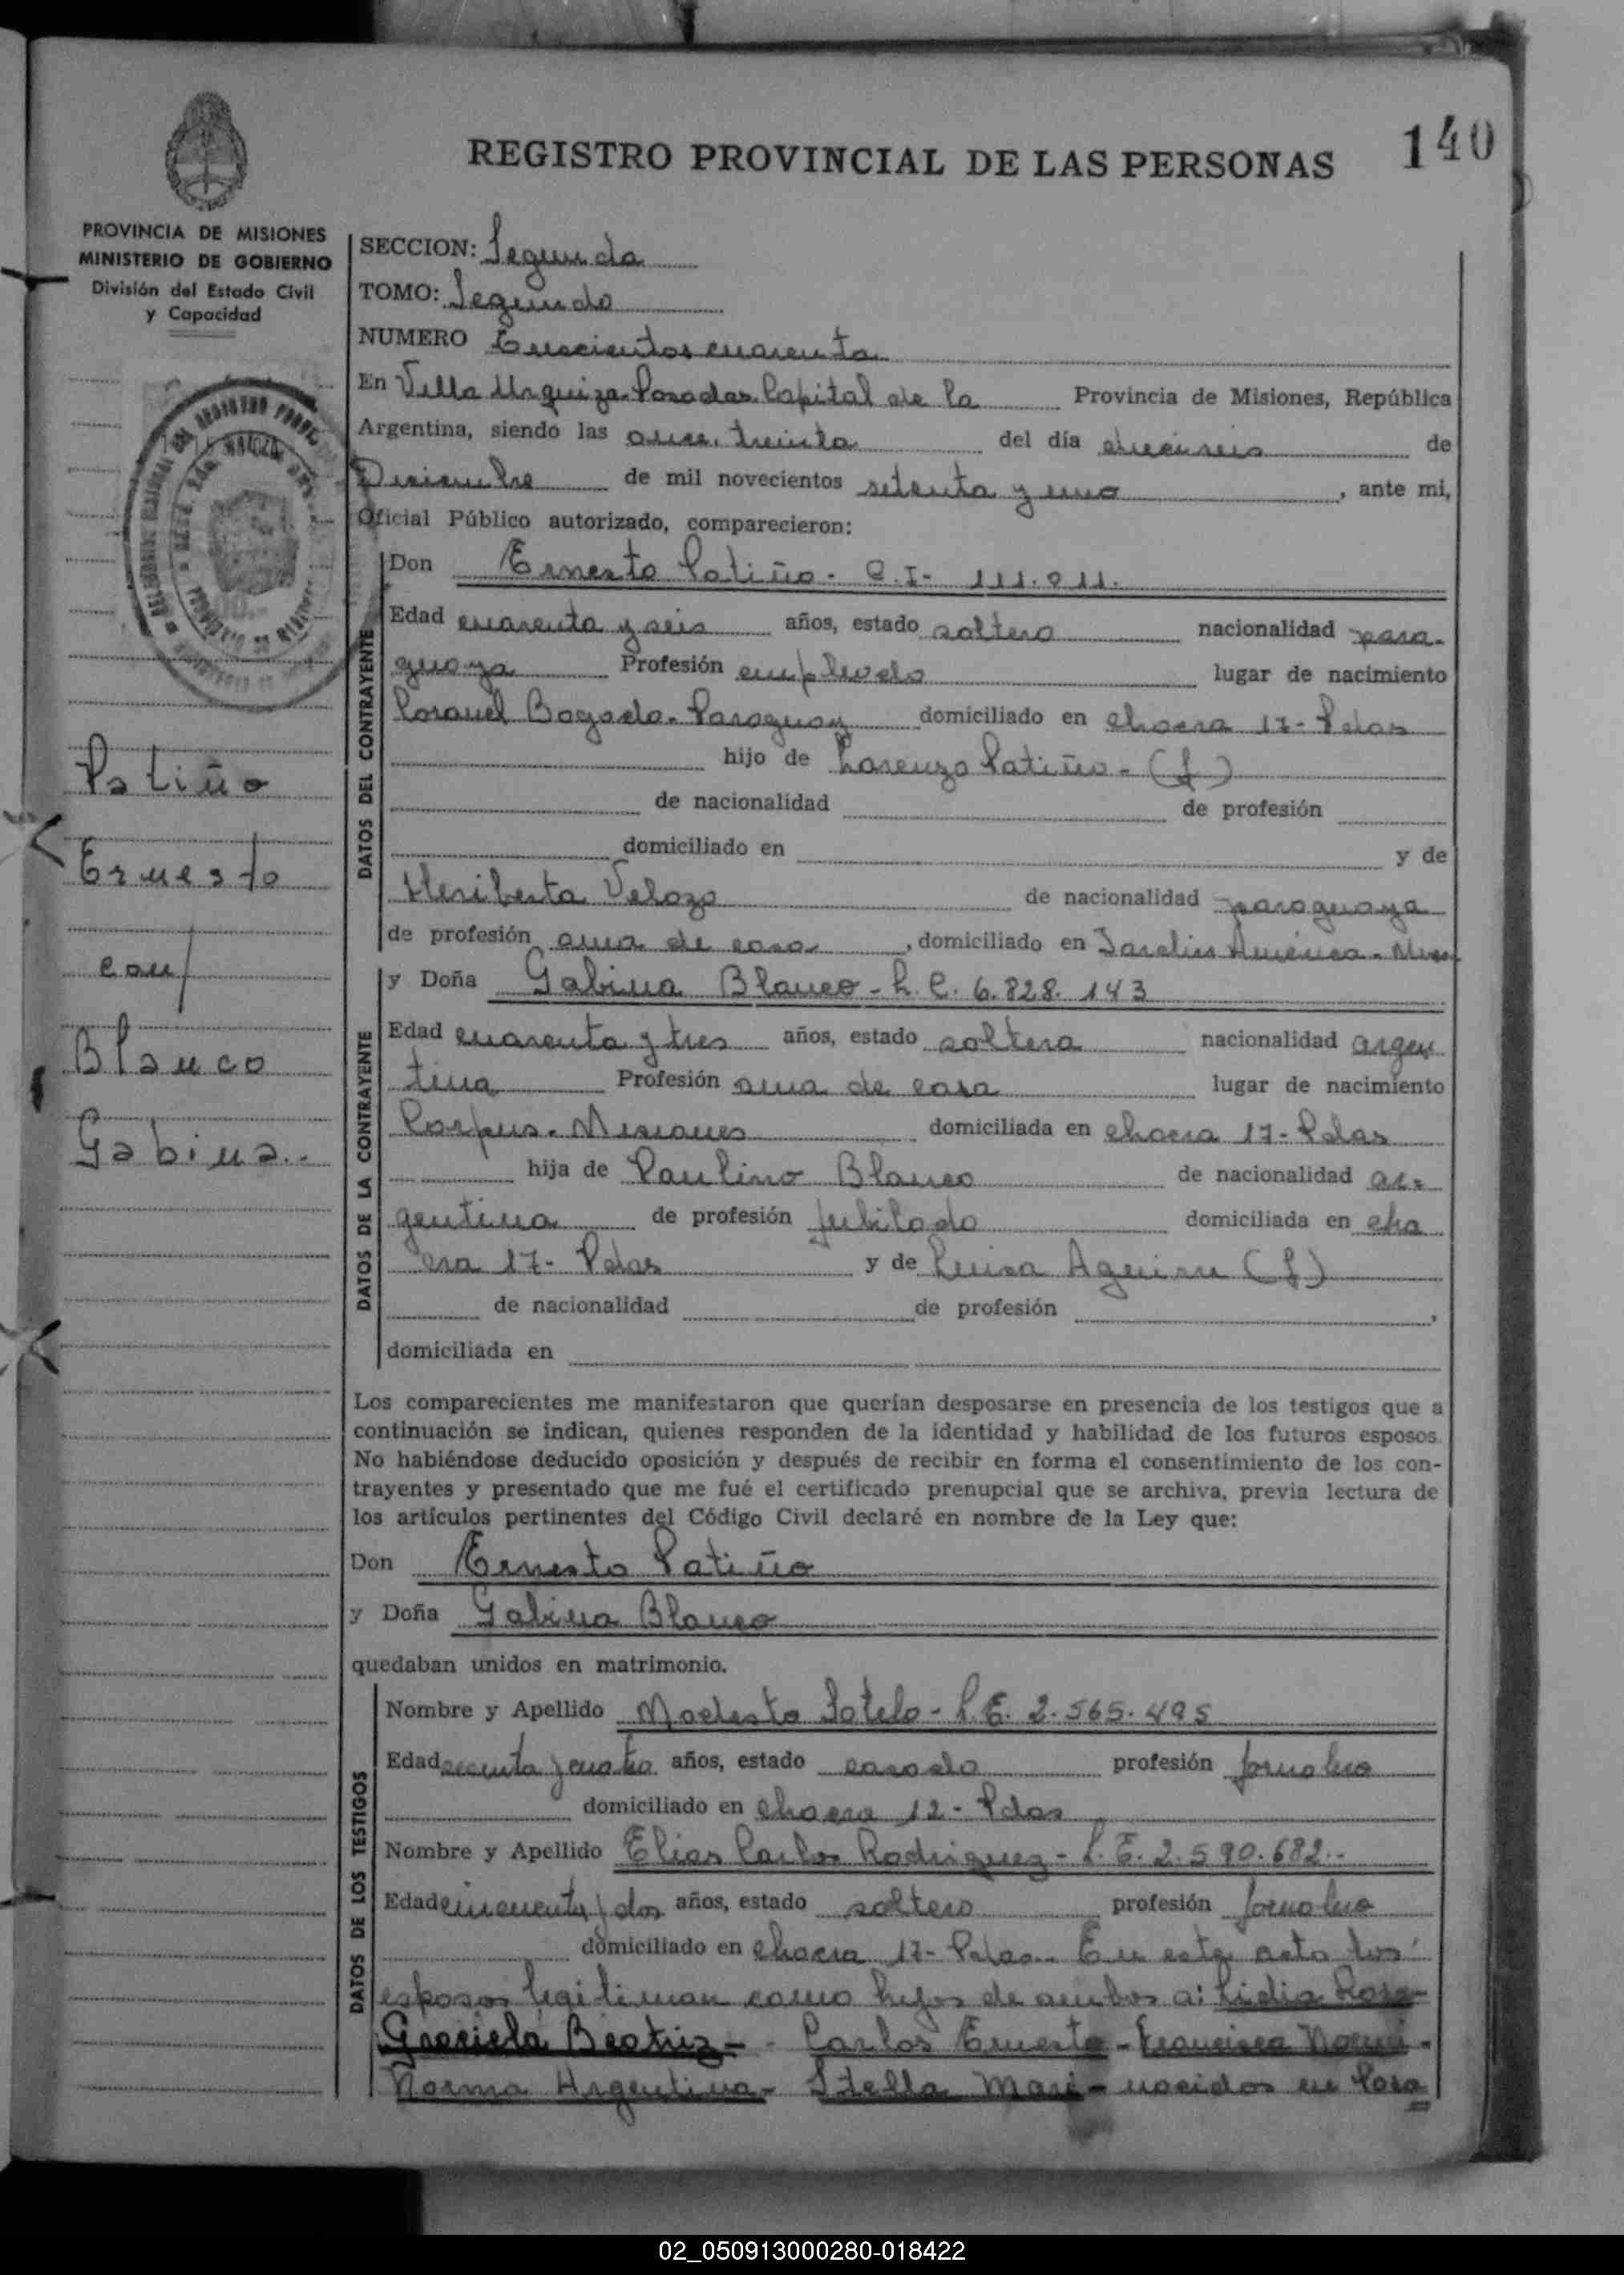 140
REGISTRO PROVINCIAL DE LAS PERSONAS
PROVINCIA DE MISIONES
MINISTERIO DE GOBIERNO
División del Estado Civil
y Capacidad
SECCION: Segunda
TOMO: Segundo
NUMERO cuarenta
En Villa Urquiza Posadas Capital de la Provincia de Misiones, República
Argentina, siendo las once treinta del día dieciseis de
Diciembre de mil novecientos setenta y uno, ante mi,
Oficial Público autorizado, comparecieron:
DATOS DEL CONTRAYENTE
Don Ernesto Patiño - C.I- 111.011.
Edad cuarenta y seis años, estado soltero nacionalidad para-
guaya Profesión empleado lugar de nacimiento
Coronel Bogado - Paraguay domiciliado en chacra 17 - Pdas
hijo de Lorenzo Patiño - (f)
de nacionalidad de profesión
domiciliado en y de
Heriberta Velozo de nacionalidad paraguaya
de profesión ama de casa, domiciliado en Jardin America - Mnes
Patiño
Ernesto
con/
Blanco
Gabina..
DATOS DE LA CONTRAYENTE
y Doña Gabina Blanco - L.C. 6.828.143
Edad cuarenta y tres años, estado soltera nacionalidad argen
tina Profesión ama de casa lugar de nacimiento
Corpus - Misiones domiciliada en chacra 17 - Pdas
hija de Paulino Blanco de nacionalidad ar=
gentina de profesión jubilado domiciliada en cha
cra 17 - Pdas y de Luisa Aguirre (f)
de nacionalidad de profesión ,
domiciliada en
Los comparecientes me manifestaron que querían desposarse en presencia de los testigos que a
continuación se indican, quienes responden de la identidad y habilidad de los futuros esposos.
No habiéndose deducido oposición y después de recibir en forma el consentimiento de los con-
trayentes y presentado que me fué el certificado prenupcial que se archiva, previa lectura de
los artículos pertinentes del Código Civil declaré en nombre de la Ley que:
Don Ernesto Patiño
y Doña Gabina Blanco
quedaban unidos en matrimonio.
DATOS DE LOS TESTIGOS
Nombre y Apellido Modesto Sotelo - L.E. 2.565.495
Edad y cuatro años, estado casado profesión jornalero
domiciliado en chacra 12 - Pdas
Nombre y Apellido Elias Carlos Rodriguez - L.E. 2.590.682.-
Edad cincuenta y dos años, estado soltero profesión jornalero
domiciliado en chacra 17 - Pdas. En este acto los
esposos legitiman como hijos de ambos a: Lidia Rosa-
Graciela Beatriz - Carlos Ernesto - Francisca Noemi -
Norma Argentina - Stella Mari - nacidos en Posa
02_050913000280-018422